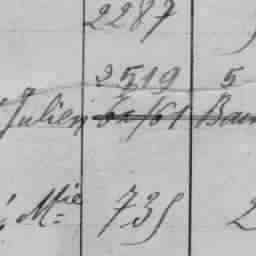 2287
2519 5
Julien
Mie 735 2